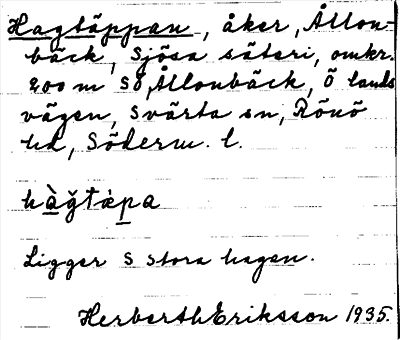 Hagtäppan, åker, Ållon-
bäck, Sjösa säteri, omkr.
200 m SÖ Ållonbäck, Ö lands
vägen, Svärta sn, Rönö
hd, Söderm. l.
hàğtȧpa
Ligger S Stora hagen.
Herberth Eriksson 1935.